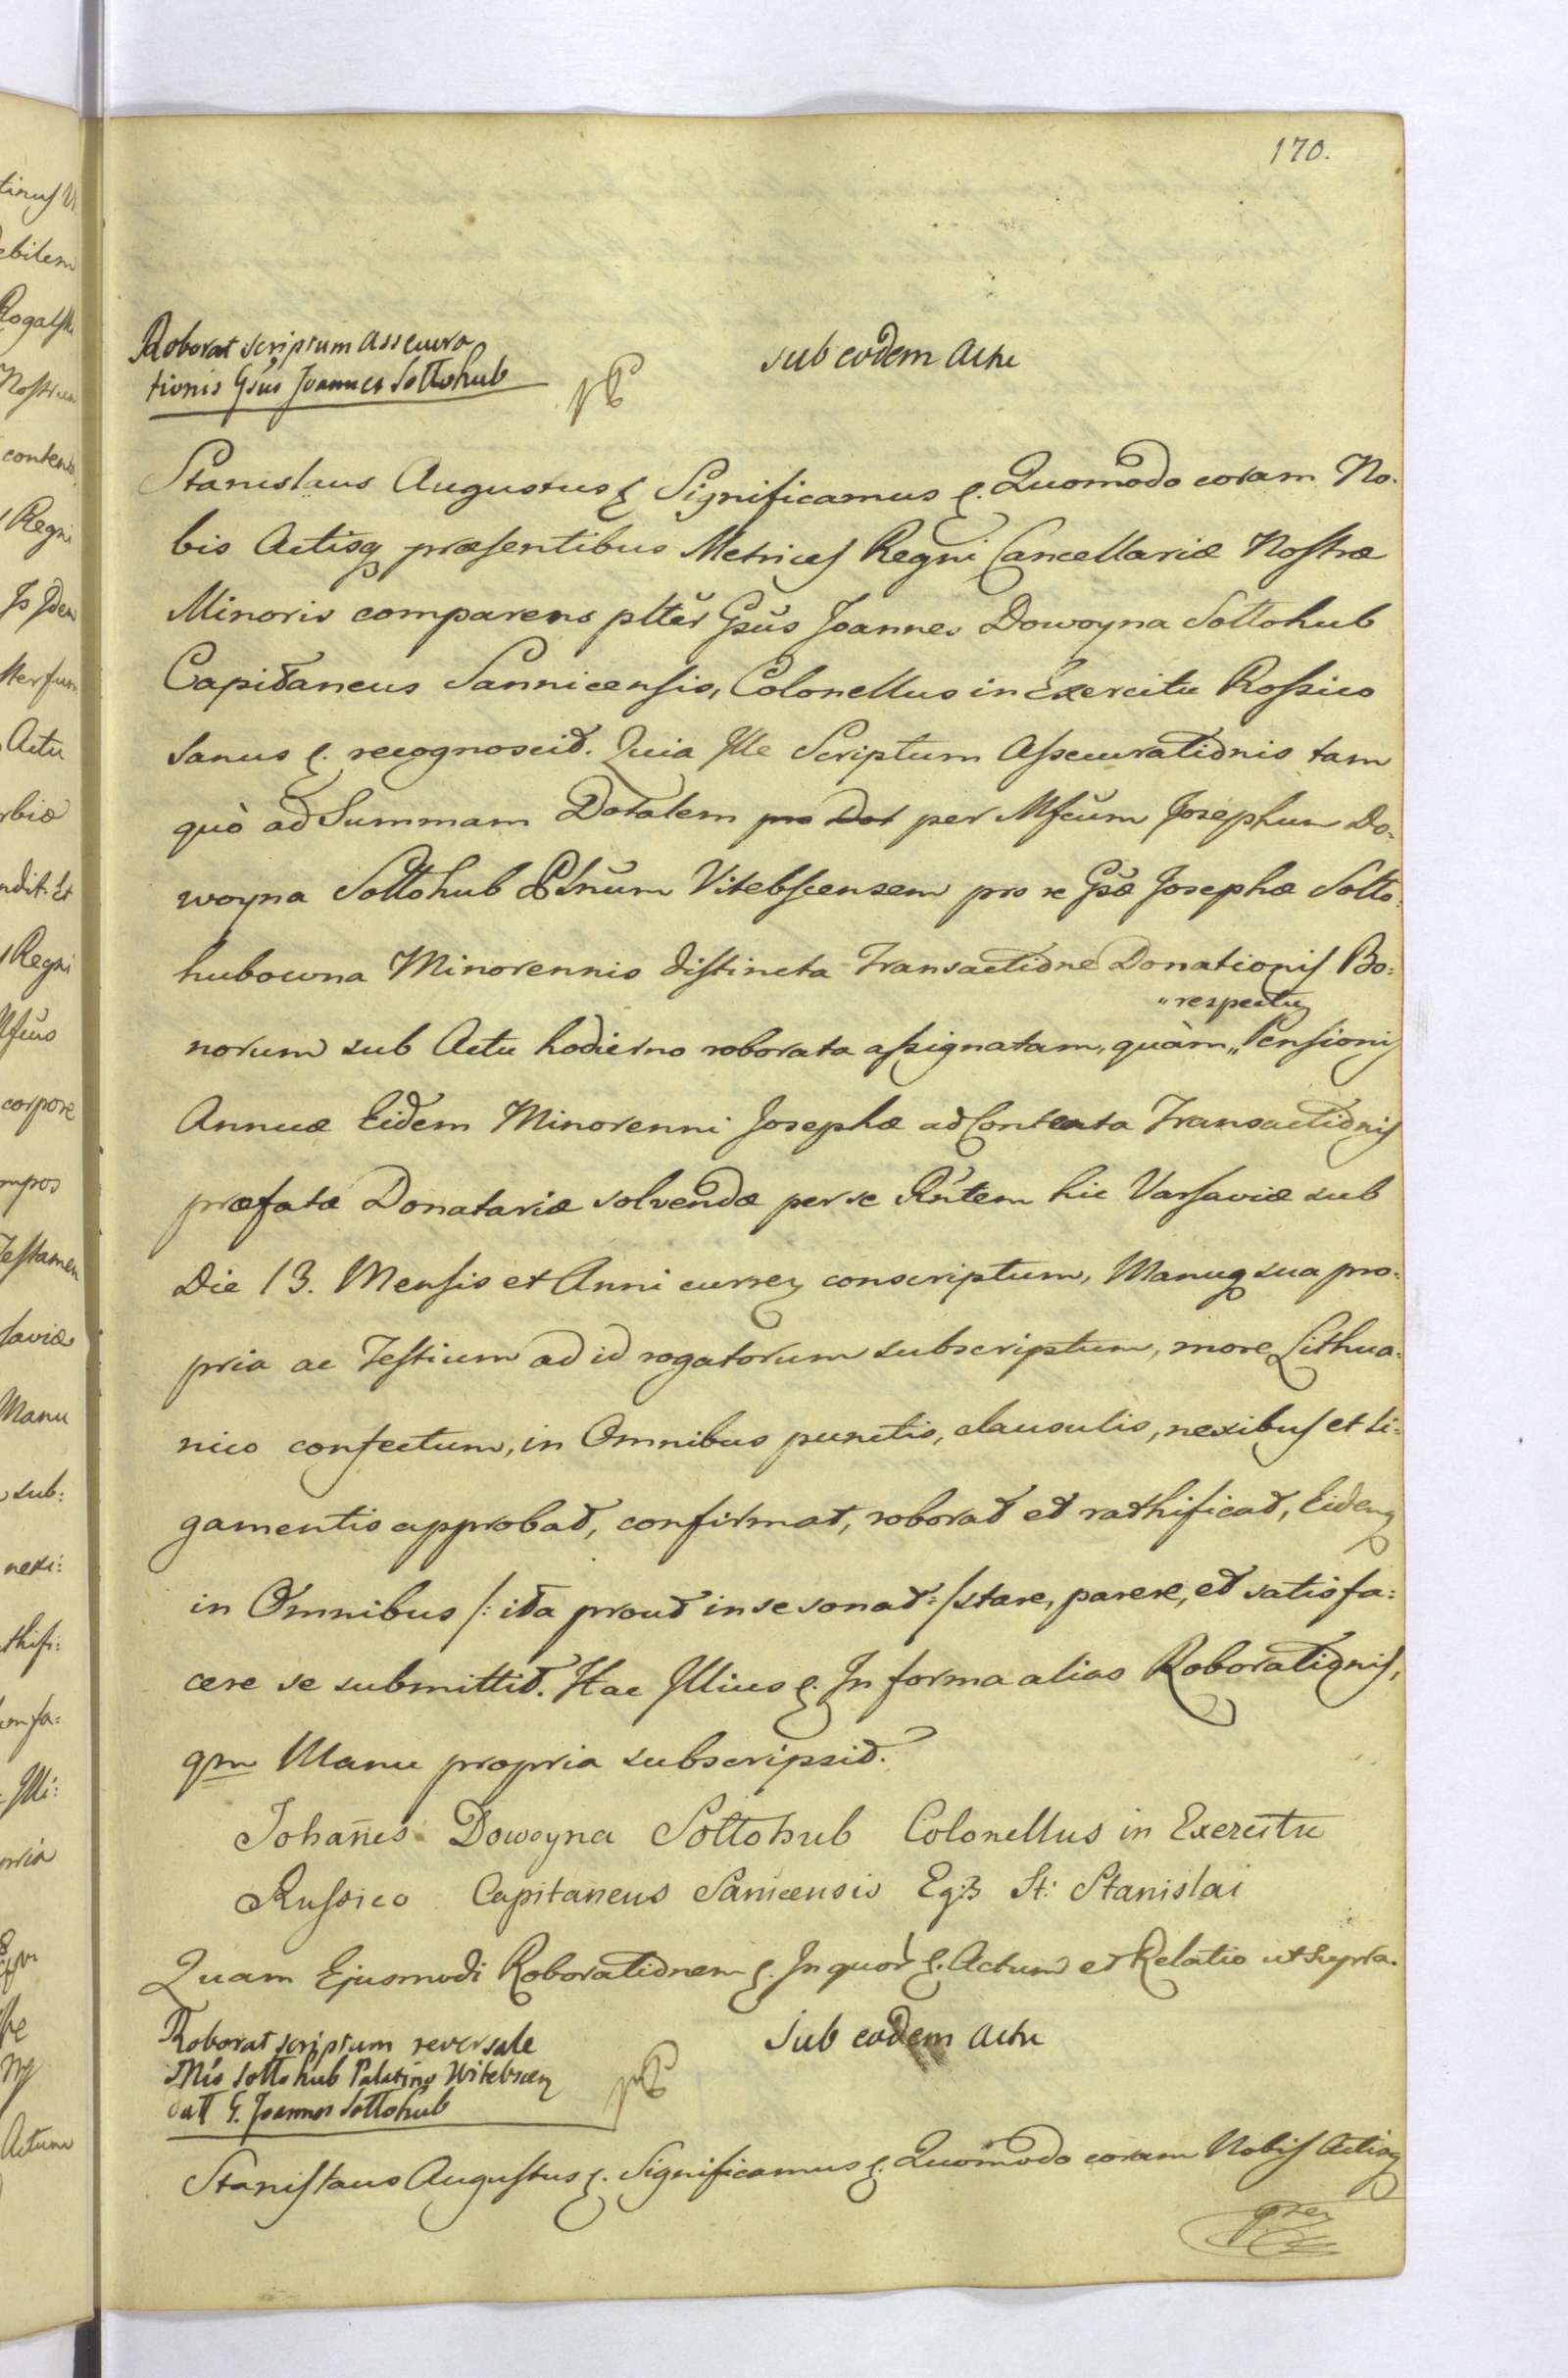 170.
Roborat scriptum assecura
tionis Gsūs Joannes Sołłohub
sub eodem Actu
Stanislaus Augustus &. Significamus &. Quomodo coram No.
bis Actisq præsentibus Metrices Regni Cancellariæ Nostræ
Minoris comparens plttēr Gsūs Joannes Dowoyna Sołłohub
Capitaneus Sannicensis, Colonellus in Exercitu Rossico
sanus &. recognoscit. Quia Ille Scriptum Assecurationis tam
quò ad Summam Dotalem pro Dot per Mfcūm Josephum Do-
woyna Sołłohub Pltnūm Vitebscensem pro re Gsæ Josephæ Sołło:
hubowna Minorennis distincta Transactione Donationis Bo:
„respectu
norum sub Actu hodierno roborata assignatam, quàm „Pensionis
Annuæ Eidem Minorenni Josephæ ad Contenta Transactionis
præfatæ Donatariæ solvendæ per se Rntem hic Varsaviæ sub
Die 13. Mensis et Anni curren conscriptum, Manuq sua pro:
pria ac Testium ad id rogatorum subscriptum, more Lithua:
nico confectum, in Omnibus punctis, clausulis, nexibus et li:
gamentis approbat, confirmat, roborat et rathificat, Eidemq
in Omnibus /: ita prout in se sonat :/ stare, parere, et satisfa:
cere se submittit. Hac Illius &. In forma alias Roborationis,
qm Manu propria subscripsit.
Johañes Dowoyna Sołłohub Colonellus in Exercitu
Russico Capitaneus Sanicensis Eq: St: Stanislai
Quam Ejusmodi Roborationem &. In quor &. Actum et Relatio ut supra.
Roborat scriptum reversale
Mīs Sołłohub Palatino Witebscen
datt G. Joannes Sołłohub
Sub eodem actu
Stanislaus Augustus &. Significamus &. Quomodo coram Nobis Actisq